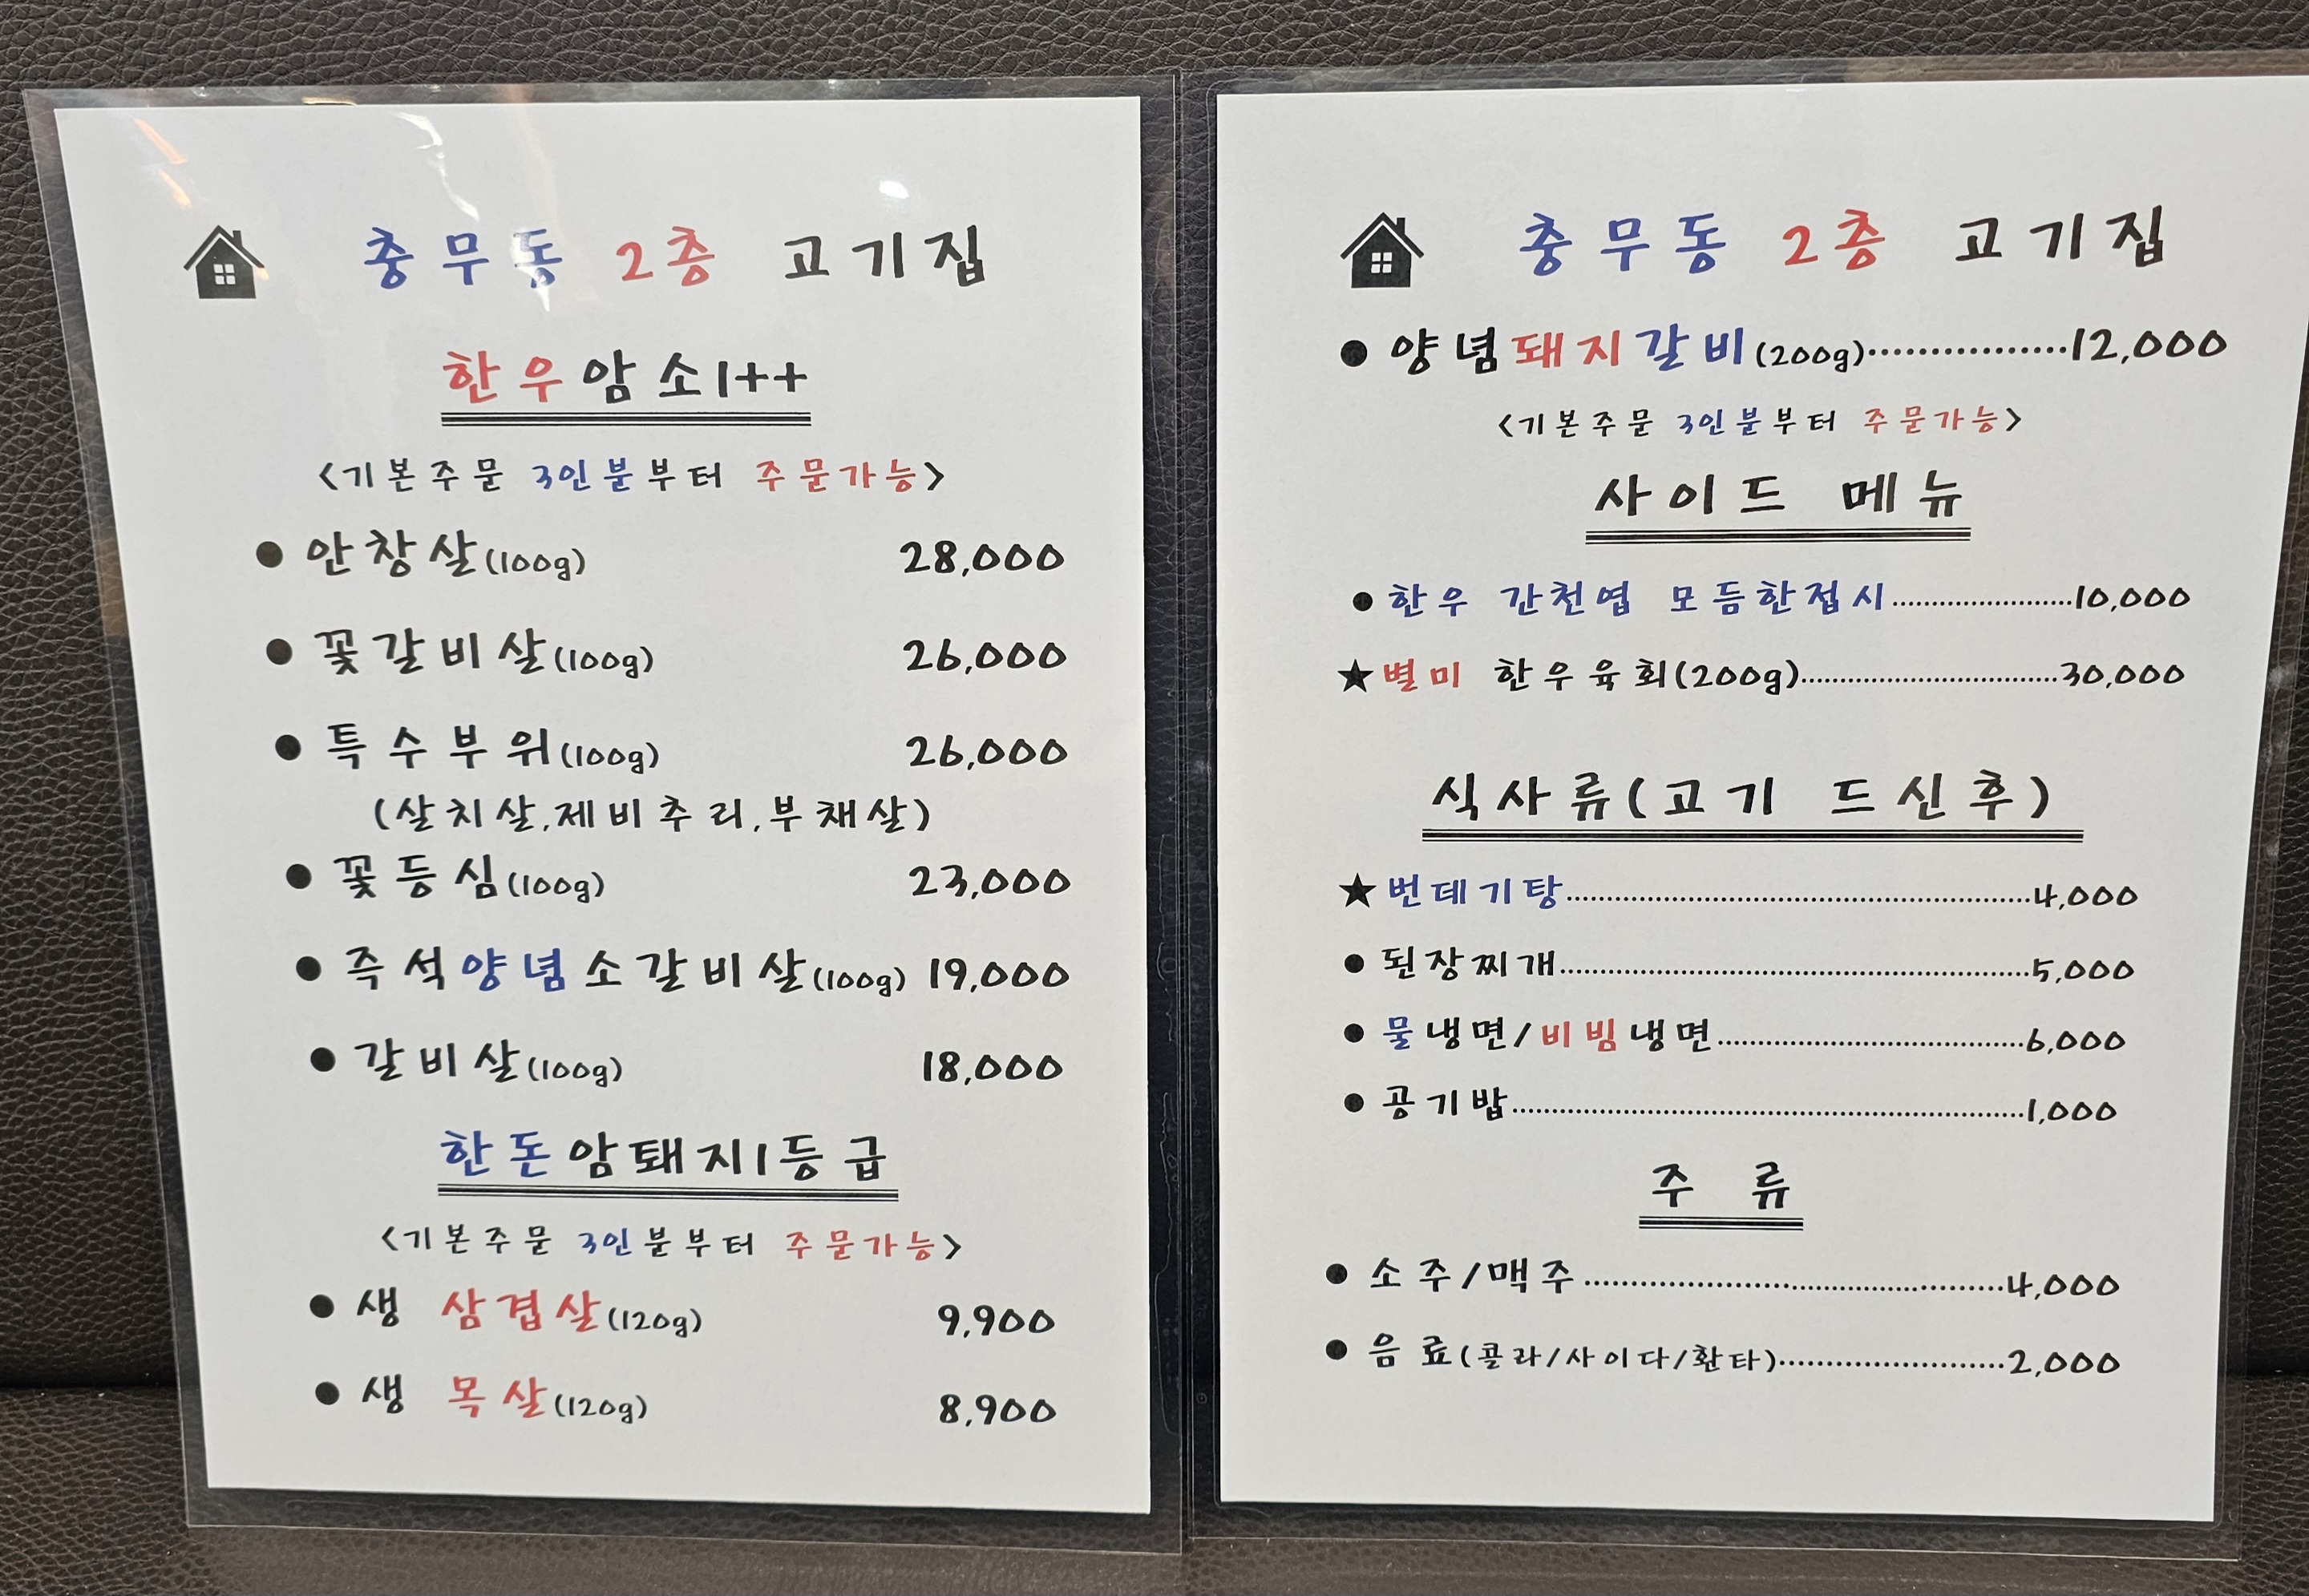 충무동 2층 고기집
한우암소1++
<기본주문 3인분부터 주문가능>
● 안창살(100g) 28,000
● 꽃갈비살(100g) 26,000
● 특수부위(100g) 26,000
(살치살,제비추리,부채살)
● 꽃등심(100g) 23,000
● 즉석양념소갈비살(100g) 19,000
● 갈비살(100g) 18,000
한돈암퇘지1등급
<기본주문 3인분부터 주문가능>
● 생 삼겹살(120g) 9,900
● 생 목살(120g) 8,900
충무동 2층 고기집
● 양념돼지갈비(200g)················12,000
<기본주문 3인분부터 주문가능>
사이드 메뉴
● 한우 간천엽 모듬한접시························10,000
★별미 한우육회(200g)··································30,000
식사류(고기 드신후)
★번데기탕······························································4,000
● 된장찌개······························································5,000
● 물냉면/비빔냉면········································6,000
● 공기밥····································································1,000
주 류
● 소주/맥주······················································4,000
● 음료(콜라/사이다/환타)····························2,000